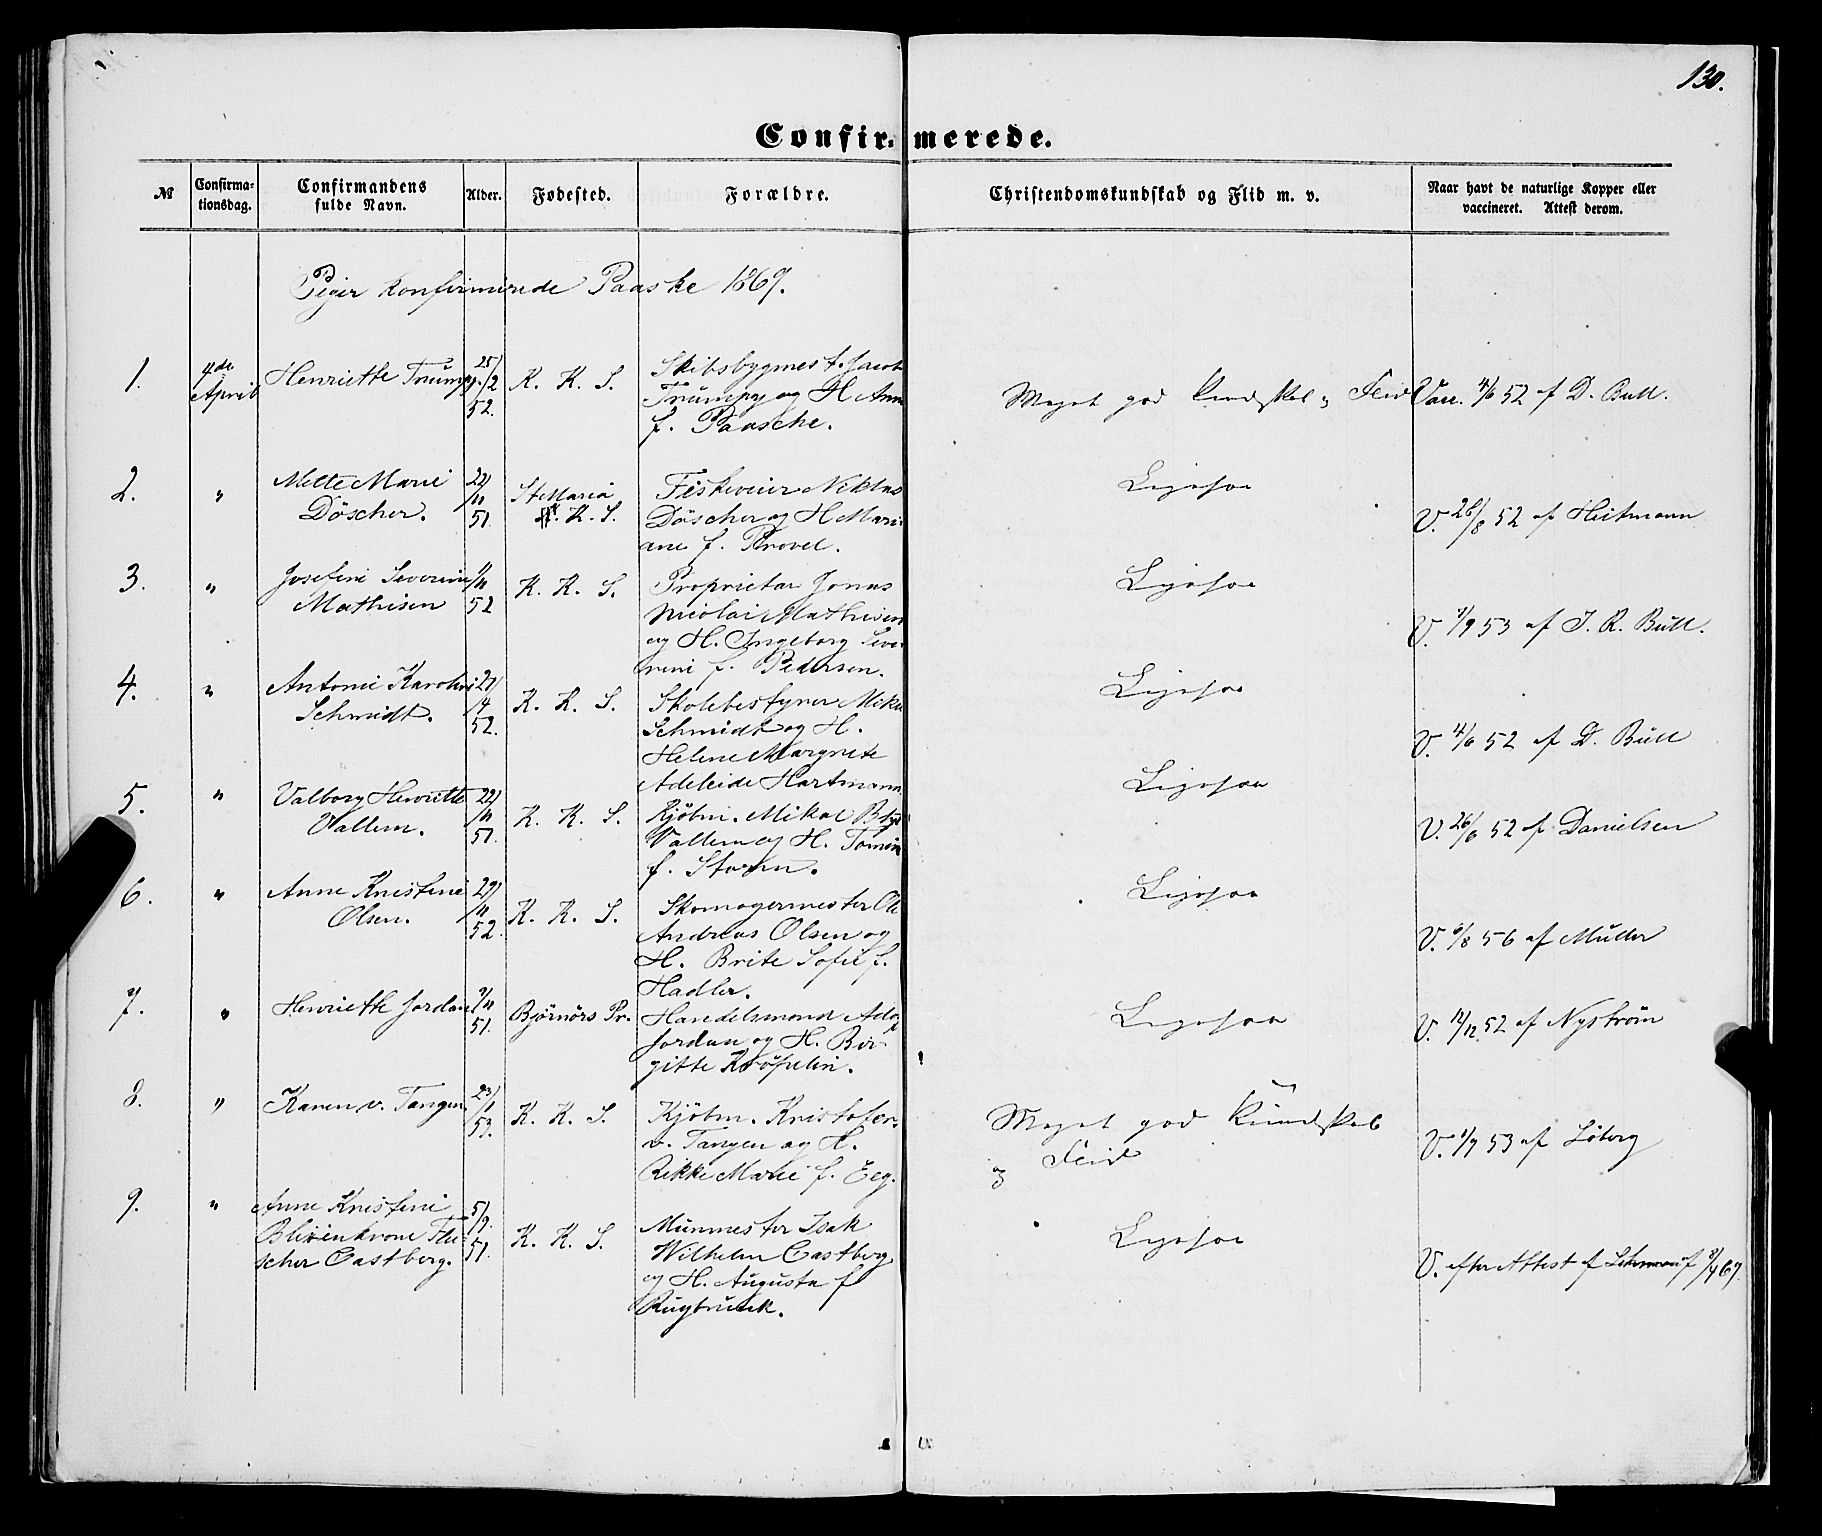 130.
Confirmerede.
№
Confirma-
tionsdag.
Confirmandens
fulde Navn.
Alder.
Fødested.
Forældre.
Christendomskundskab og Flid m. v.
Naar havt de naturlige Kopper eller
vaccineret. Attest derom.
Piger konfirmerede Paaske 1867.
1.
4de
April
Henriette Trumpy.
25/
/2
52.
K. K. S.
Skibsbygmest. Jacob
Trümpy og H Anne
f. Paasche.
Meget god Kundskab og Flid
Vacc. 4/6 52 af D. Bull.
2.
"
Mette Marie
Döscher.
22/
/11
51.
St Maria
K. S.
Fiskeveier Niklas
Döscher og H Mari
ane f. Provel.
Ligesaa
V. 26/8 52 af Heitmann
3.
"
Josefine Severine
Mathisen
/11
52
K. K. S.
Proprietær Jonas
Nicolai Mathisen
og H. Ingeborg Seve-
rine f. Pedersen.
Ligesaa
V. 1/9 53 af J. R. Bull.
4.
"
Antonie Karoline
Schmidt.
27/
/4
52.
K. K. S.
Skolebestyrer Mikal
Schmidt og H.
Helene Margrete
Adeleide Hartmann
Ligesaa
V. 4/6 52 af D. Bull
5.
"
Valborg Henriette
Vallem.
22/
/11
51.
K. K. S.
Kjöbm. Mikal
Vallem og H. Tomine
f. Storm.
Ligesaa
V. 26/6 52 af Danielsen
6.
"
Anne Kristine
Olsen.
29/
/11
52.
K. K. S.
Skomagermester Ole
Andreas Olsen og
H. Brite Sofie f.
Hadler.
Ligesaa
V. 6/8 56 af Muller
7.
"
Henriette Jordan
/11
51.
Björnörs Pr.
Handelsmand Adolf
Jordan og H. Bir-
gitte Kröpelin.
Ligesaa
V. 12/12 52 af Nyström
8.
"
Karen v. Tangen.
23/
/1
53.
K. K. S.
Kjöbm. Kristofer
v. Tangen og H.
Rikke Marie f. Eeg.
Meget god Kundskab
og Flid
V. 1/7 53 af Löberg
9.
"
Anne Kristine
Blixenkrone Fli-
scher Castberg.
5/
/9
51.
K. K. S.
Murmester Isak
Wilhelm Castberg
og H. Augusta f
Ligesaa
V. efter Attest af 8/4 67.